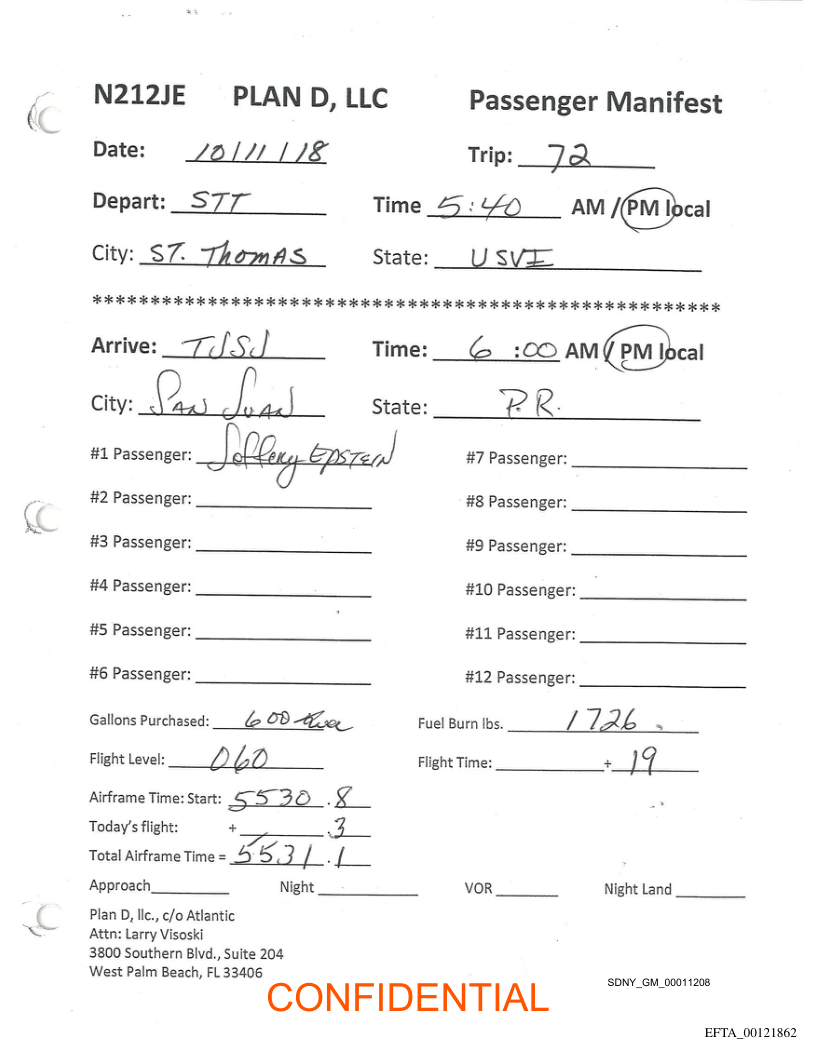 N212JE PLAN D, LLC Passenger Manifest
Date: 10/11/18 Trip: 72
Depart: STT Time 5:40 AM / PM local
City: ST. ThomAS State: USVI
******************************************************
Arrive: TJSJ Time: 6 :00 AM / PM local
City: SAN JUAN State: P.R.
#1 Passenger: Jeffery EPSTEIN #7 Passenger:
#2 Passenger: #8 Passenger:
#3 Passenger: #9 Passenger:
#4 Passenger: #10 Passenger:
#5 Passenger: #11 Passenger:
#6 Passenger: #12 Passenger:
Gallons Purchased: 600 Fuel Burn lbs. 1726
Flight Level: 060 Flight Time: + 19
Airframe Time: Start: 5530 .8
Today's flight: + .3
Total Airframe Time = 5531 .1
Approach Night VOR Night Land
Plan D, llc., c/o Atlantic
Attn: Larry Visoski
3800 Southern Blvd., Suite 204
West Palm Beach, FL 33406
SDNY_GM_00011208
CONFIDENTIAL
EFTA_00121862